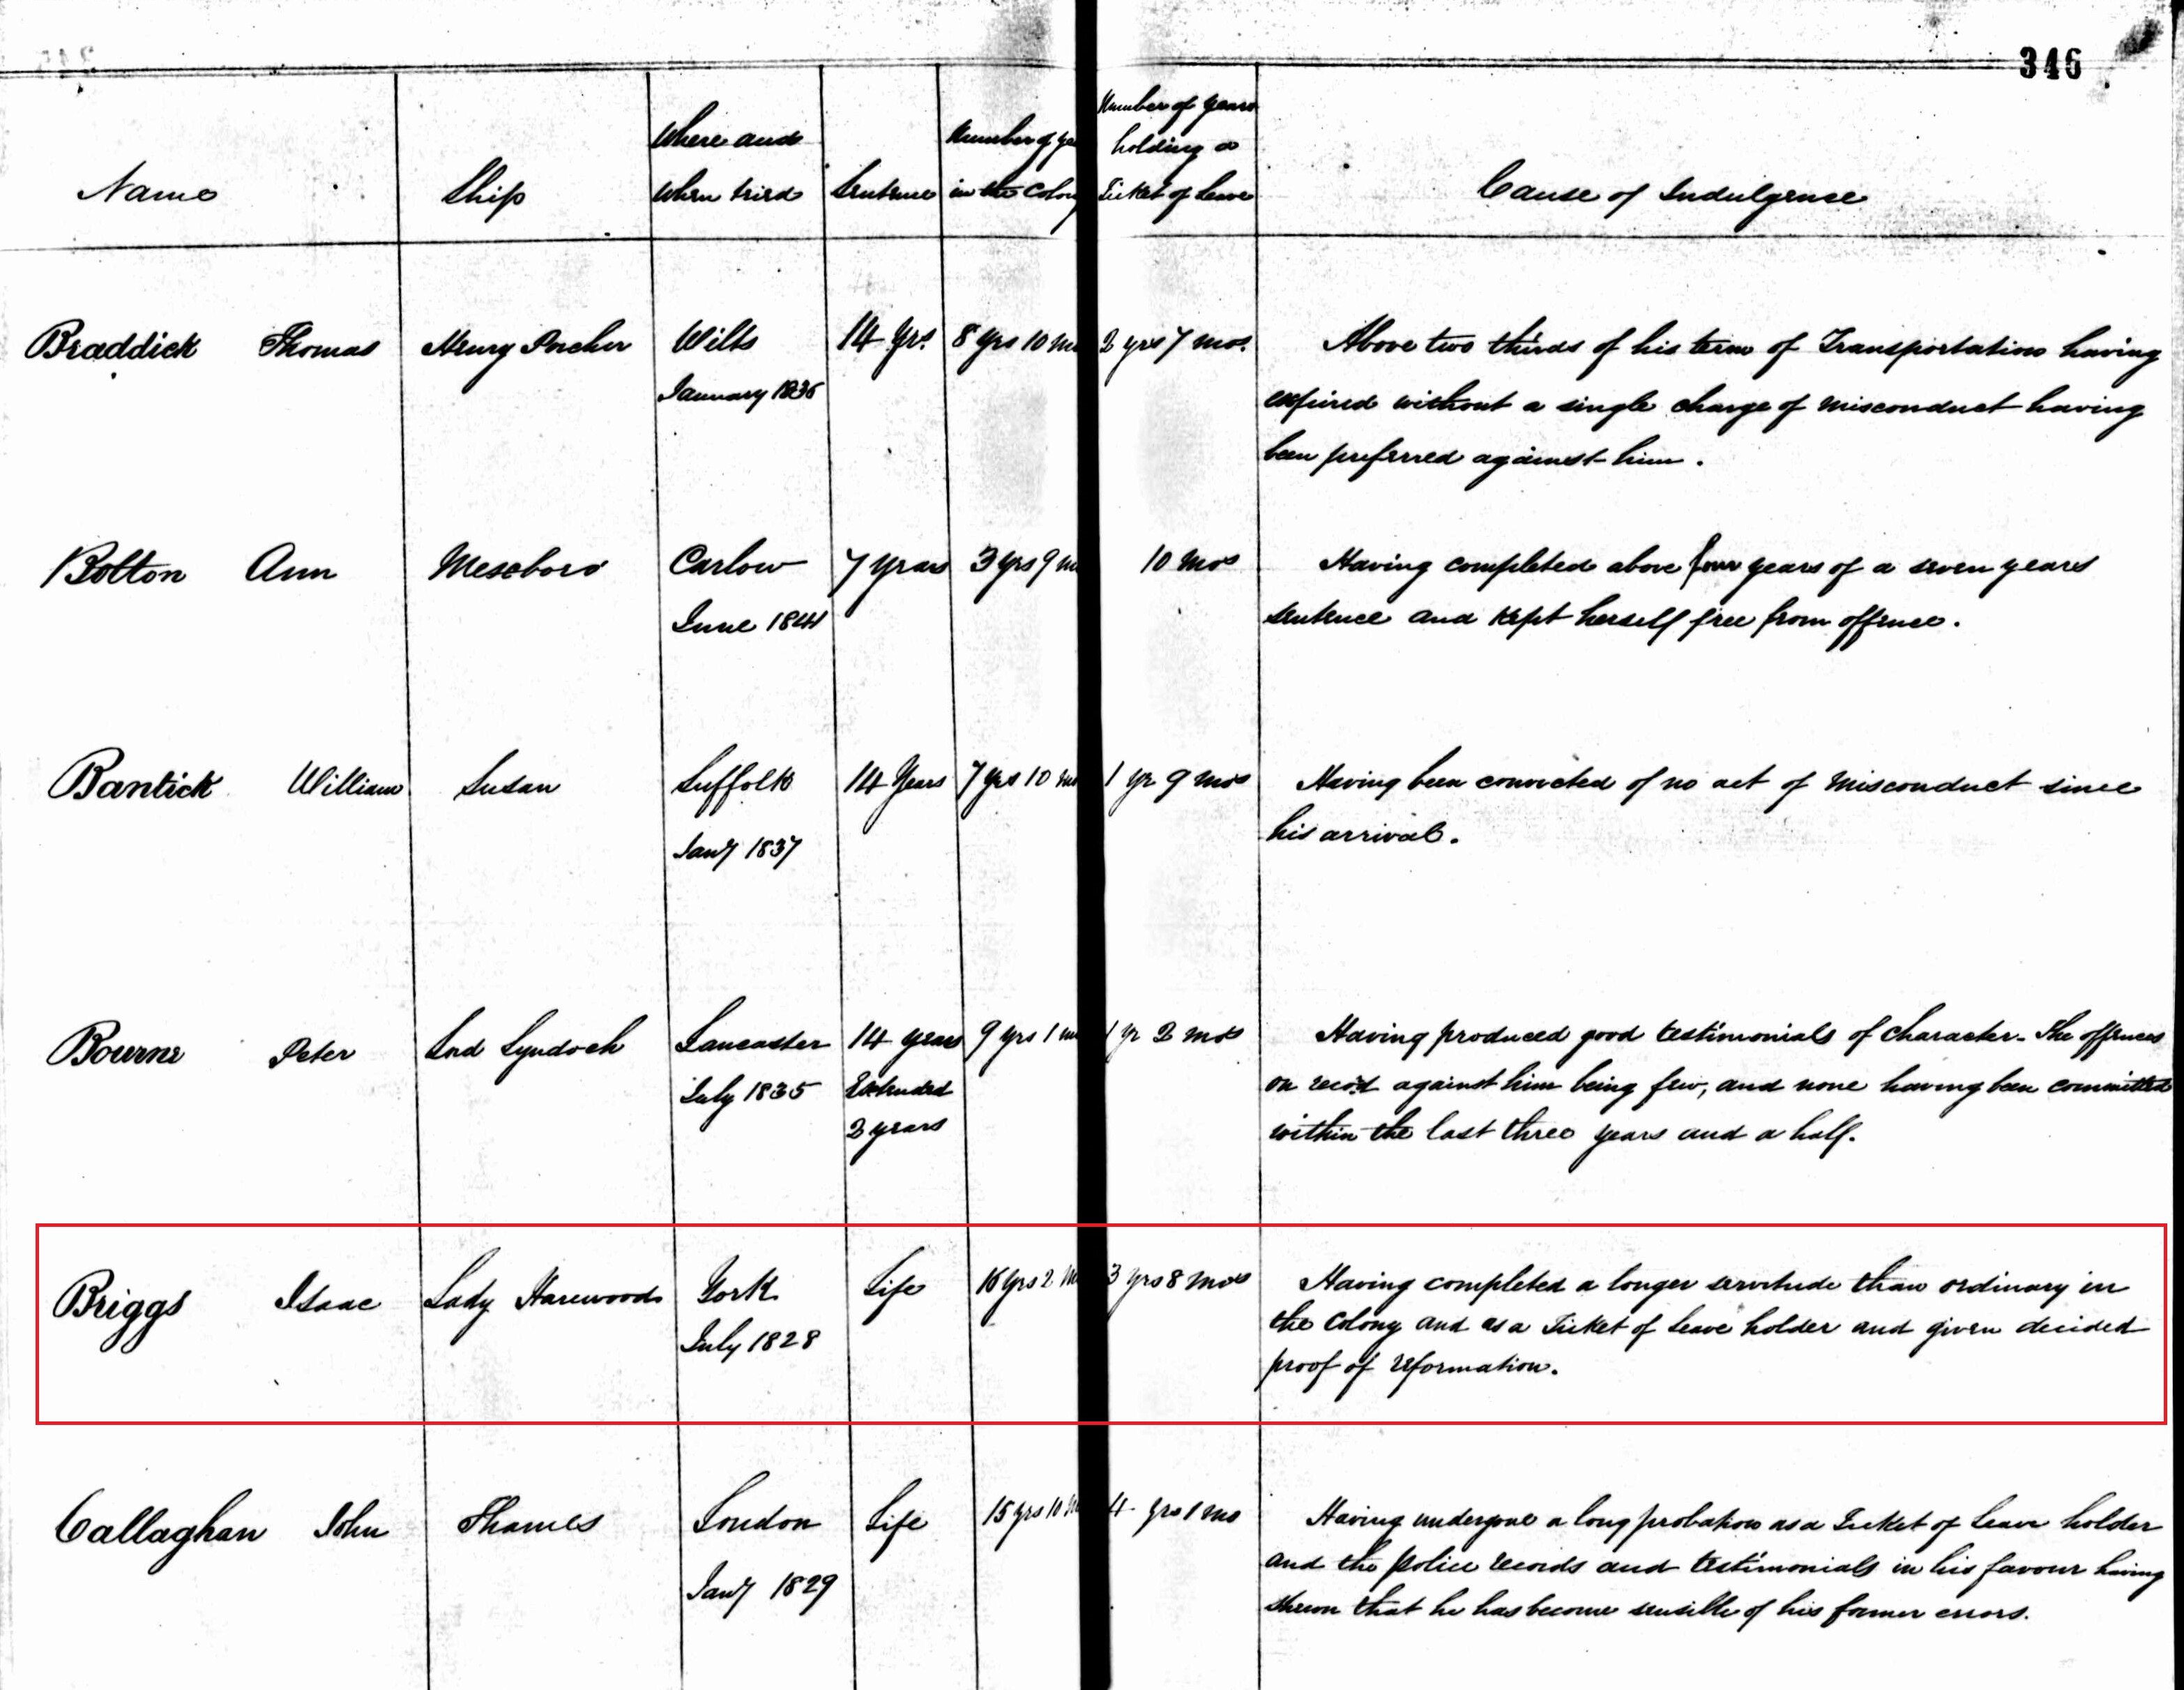 346
Name
Ship
Where and
when tried
Sentence
Number of
in the Colony
Number of years
holding a
Ticket of Leave
Cause of Indulgence
Braddick Thomas Henry Porcher Wilts 14 Yrs. 8 yrs 10 2 yrs 7 mos. Above two thirds of his term of Transportation having
January 1836 expired without a single charge of misconduct having
been preferred against him.
Bolton Ann Carlow 7 years 3 yrs 9 10 mos Having completed above four years of a seven years
June 1844 sentence and kept herself free from offence.
Bantick William Susan Suffolk 14 Years 7 yrs 10 1 yr 9 mos Having been convicted of no act of misconduct since
Jany 1837 his arrival.
Bourne Peter Lord Lyndoch Lancaster 14 years 9 yrs 1 1 yr 2 mos Having produced good testimonials of character - The offences
July 1835 Extended on record against him being few, and none having been committed
2 years within the last three years and a half.
Briggs Isaac Lady Harewood York Life 16 yrs 2 3 yrs 8 mos Having completed a longer servitude than ordinary in
July 1828 the Colony and as a Ticket of Leave holder and given decided
proof of reformation.
Callaghan John Thames London Life 15 yrs 10 4 yrs 1 mo Having undergone a long probation as a Ticket of Leave holder
Jany 1829 and the police records and testimonials in his favour having
shewn that he has become sensible of his former errors.